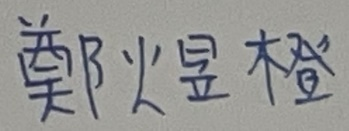 鄭煜橙